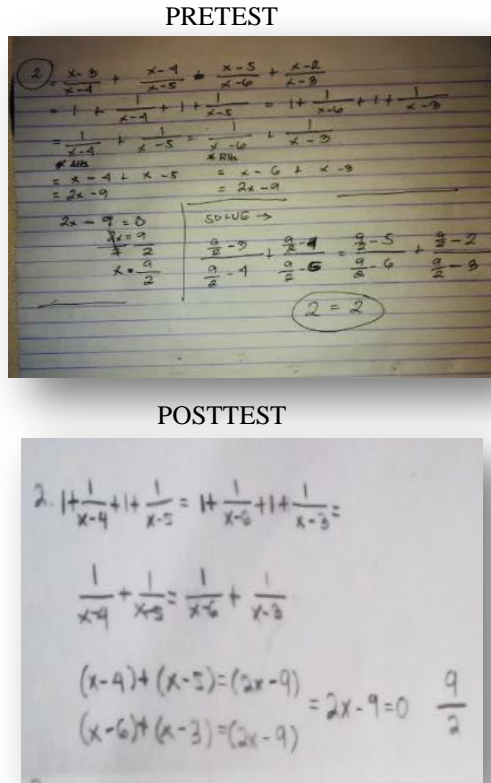 PRETEST
2. = x-3/x-4 + x-4/x-5 = x-5/x-6 + x-2/x-3
= 1 + 1/x-4 + 1 + 1/x-5 = 1 + 1/x-6 + 1 + 1/x-3
= 1/x-4 + 1/x-5 = 1/x-6 + 1/x-3
* LHS * RHS
= x-4 + x-5 = x-6 + x-3
= 2x-9 = 2x-9
2x-9=0 SOLVE →
2x=9/2 9/2-3/9/2-4 + 9/2-4/9/2-5 = 9/2-5/9/2-6 + 9/2-2/9/2-3
x=9/2
2=2
POSTTEST
2. 1+1/x-4+1+1/x-5=1+1/x-6+1+1/x-3=
1/x-4+1/x-5=1/x-6+1/x-3
(x-4)+(x-5)=(2x-9)
=2x-9=0 9/2
(x-6)+(x-3)=(2x-9)